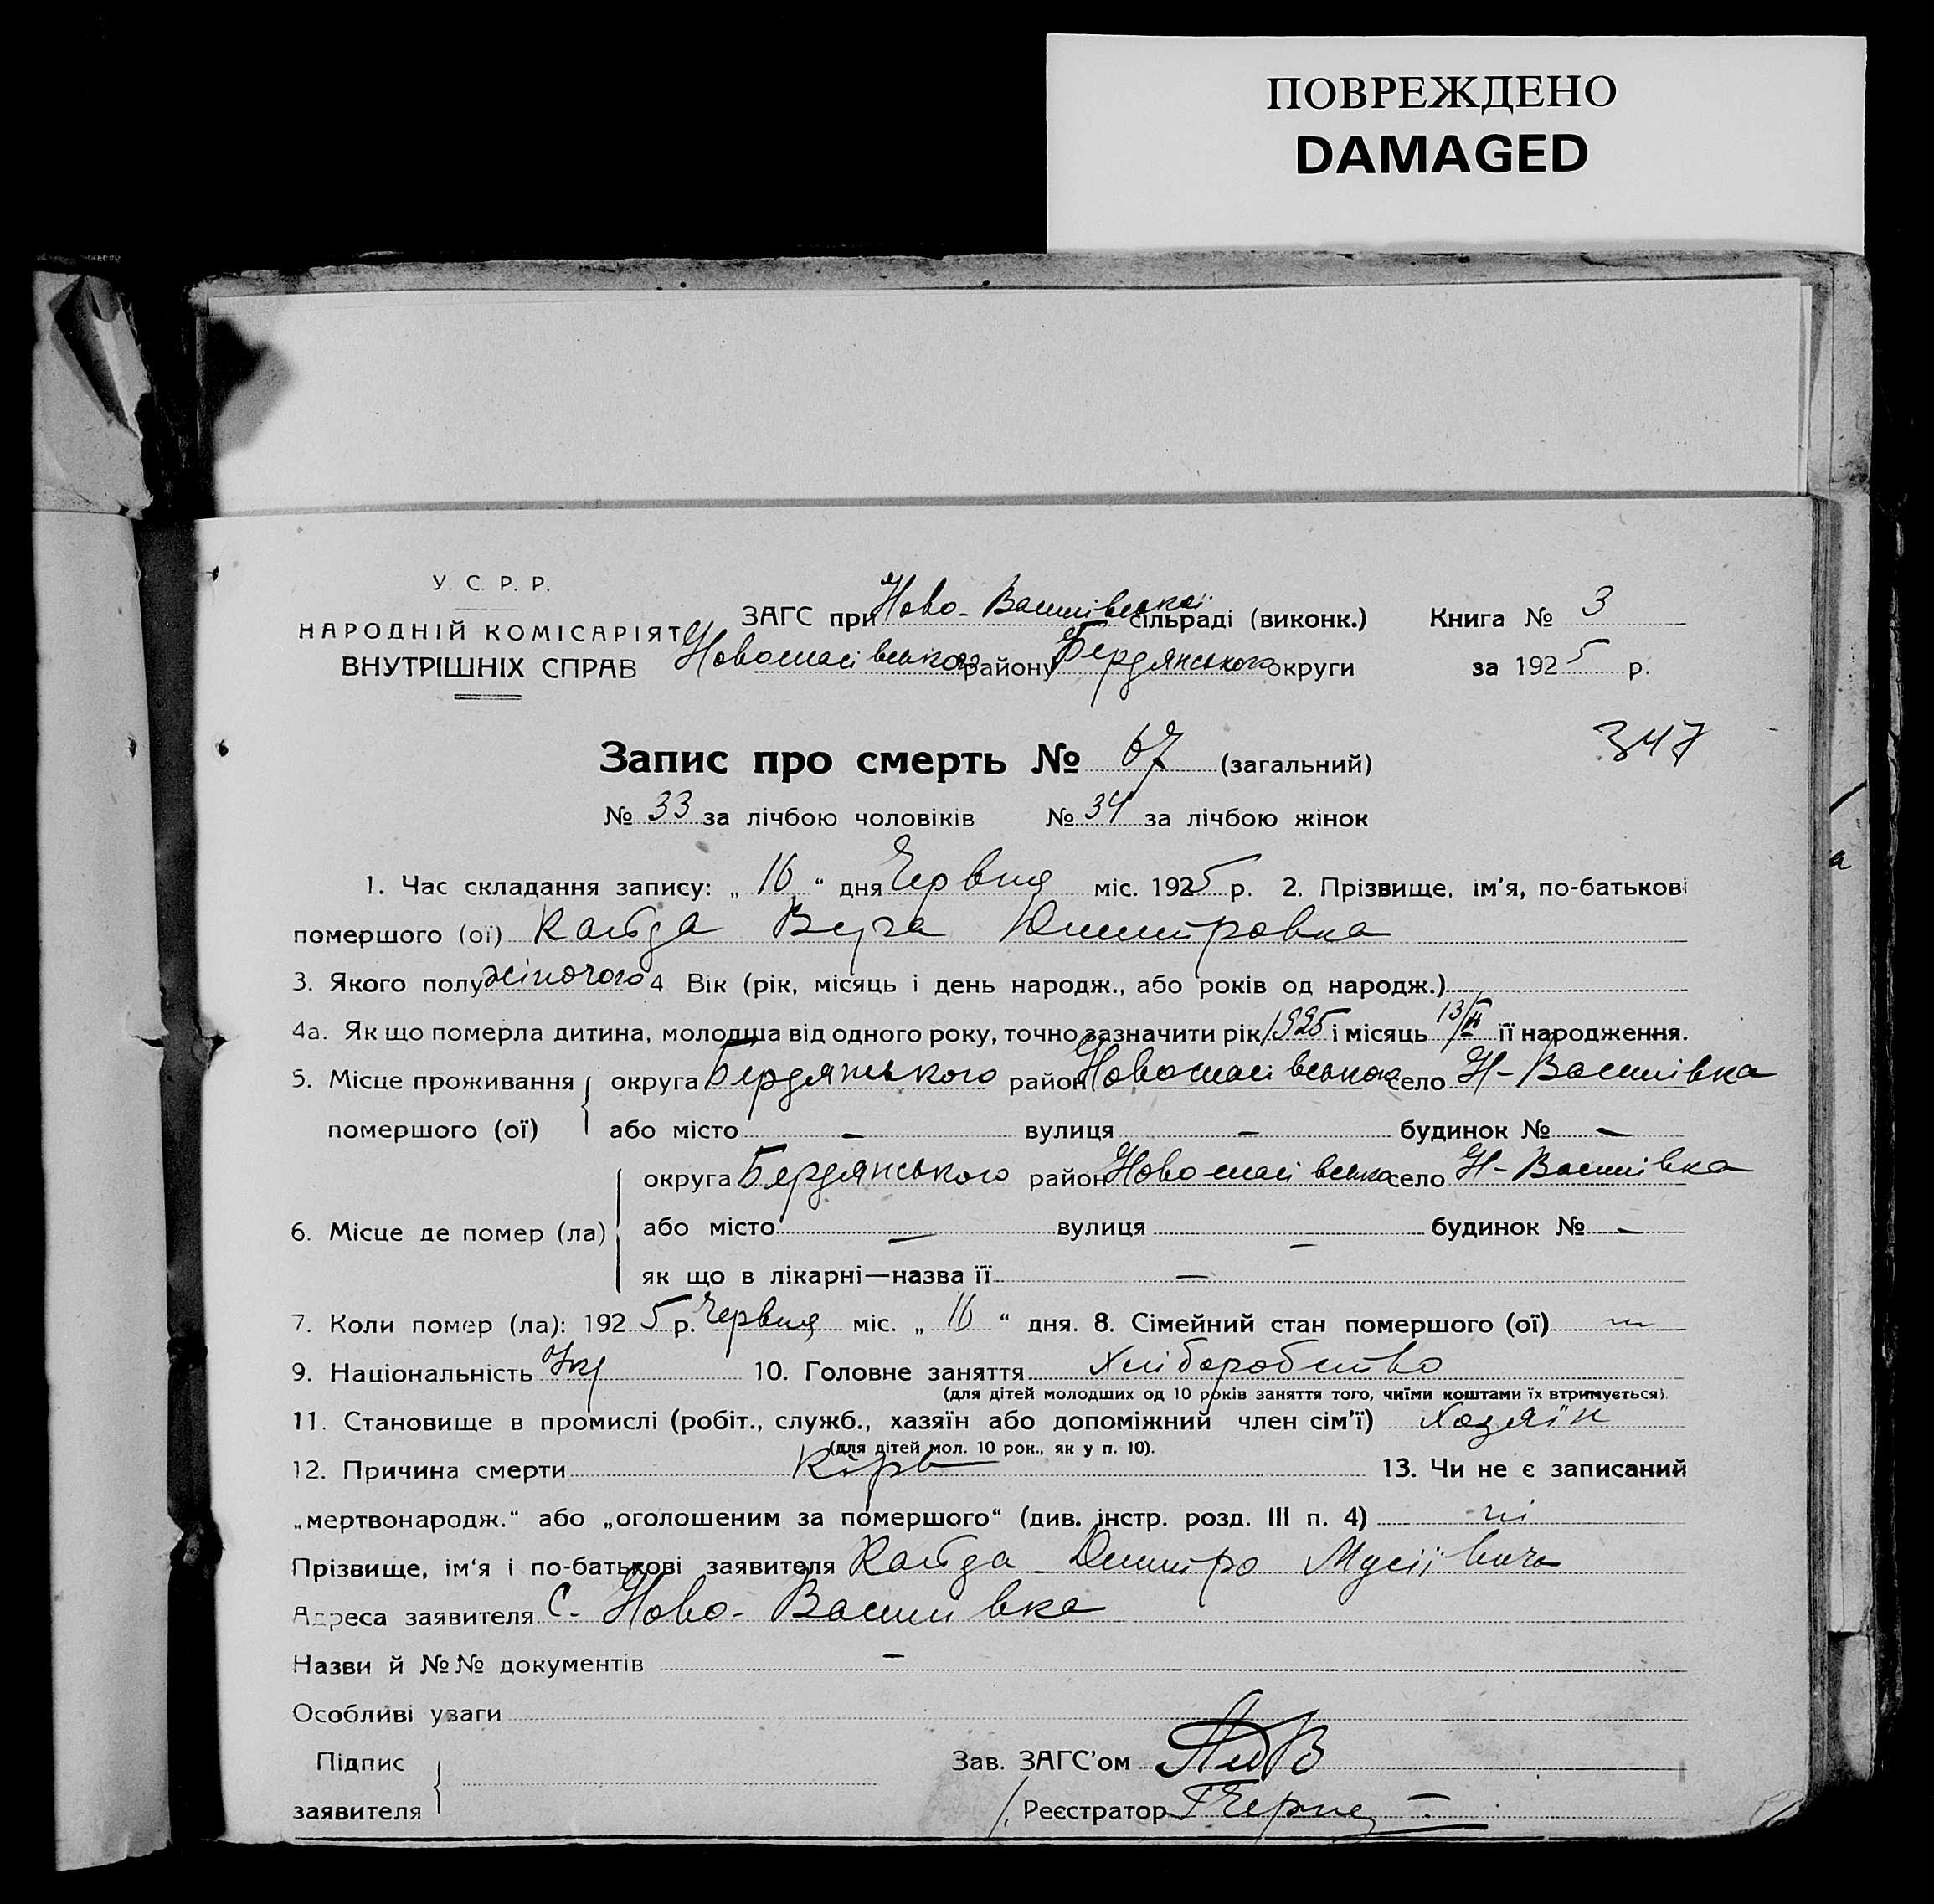 ПОВРЕЖДЕНО
DAMAGED
У. С. Р. Р.
НАРОДНІЙ КОМІСАРІЯТ
ВНУТРІШНІХ СПРАВ
ЗАГС при Ново-Василівської сільраді (виконк.) Книга № 3
району Бердянського округи за 1925 р.
Запис про смерть № 67 (загальний) 347
№ 33 за лічбою чоловіків № 34 за лічбою жінок
1. Час складання запису: „ 16 “ дня Червня міс. 1925 р. 2. Прізвище, ім'я, по-батькові
помершого (ої) Кайда Дмитровна
3. Якого полу жіночого 4 Вік (рік, місяць і день народж., або років од народж.)
4а. Як що померла дитина, молодша від одного року, точно зазначити рік 1925 і місяць її народження.
5. Місце проживання округа Бердянського район село Н-Василівка
помершого (ої) або місто – вулиця – будинок № –
округа Бердянського район село Н-Василівка
6. Місце де помер (ла) або місто – вулиця – будинок № –
як що в лікарні—назва її –
7. Коли помер (ла): 1925 р. Червня міс. „ 16 “ дня. 8. Сімейний стан помершого (ої)
9. Національність Укр 10. Головне заняття Хліборобство
(для дітей молодших од 10 років заняття того, чиїми коштами їх втримується).
11. Становище в промислі (робіт., служб., хазяїн або допоміжний член сім'ї) Хазяїн
(для дітей мол. 10 рок., як у п. 10).
12. Причина смерти Кір 13. Чи не є записаний
„мертвонародж.“ або „оголошеним за помершого“ (див. інстр. розд. III п. 4) ні
Прізвище, ім'я і по-батькові заявителя Кайда Дмитро Мусіївич
Адреса заявителя С. Ново-Василівка
Назви й №№ документів –
Особливі уваги
Підпис
заявителя
Зав. ЗАГС'ом
Реєстратор